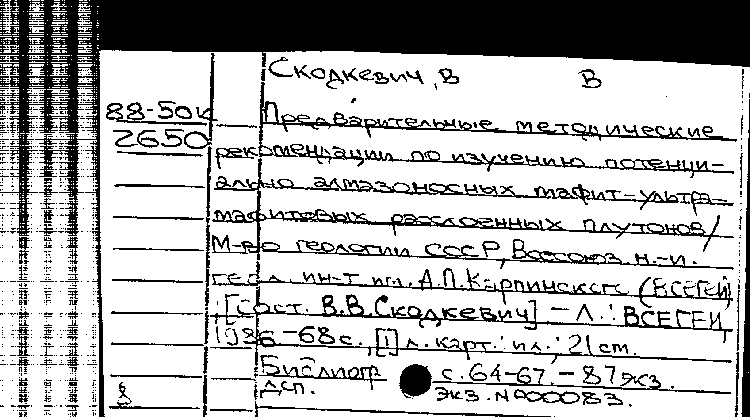 Скодкевич, В В
88-50к Предварительные методические
2650 рекомендации по изучению потенци-
ально алмазоносных мафит-ультра-
мафитовых расслоенных плутонов/
М-во геологии СССР, Всесоюз. н.-и.
геол. ин-т им. А.П.Карпинского (ВСЕГЕИ)
,[Сост. В.В.Скодкевич] - Л.: ВСЕГЕИ,
1986.-68с., [1] л. карт.: ил.; 21 см.
Библиогр с. 64-67. - 87экз.
8 ДСП. экз. №00083.